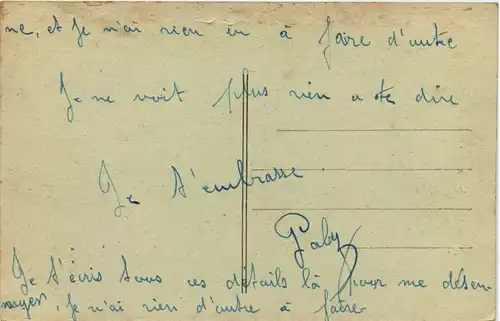 ne, et Je n'ai rien eu à faire d'autre
Je ne voit plus rien a te dire
Je t'embrasse
Gaby
Je t'écris tous ces détails là pour me désen-
nuyer, Je n'ai rien d'autre à faire